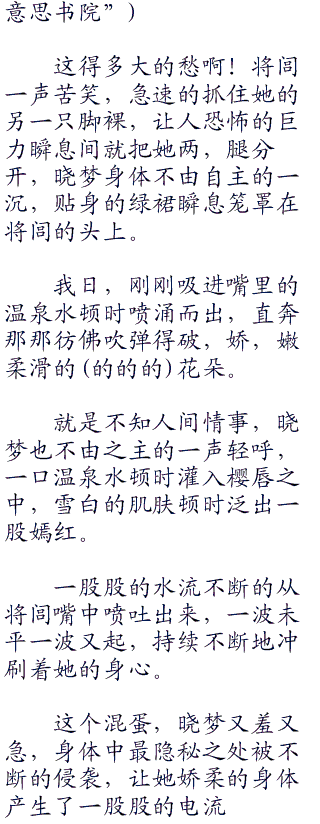 意思书院”)
这得多大的愁啊!将闾
一声苦笑,急速的抓住她的
另一只脚裸,让人恐怖的巨
力瞬息间就把她两,腿分
开,晓梦身体不由自主的一
沉,贴身的绿裙瞬息笼罩在
将闾的头上。
我日,刚刚吸进嘴里的
温泉水顿时喷涌而出,直奔
那那彷佛吹弹得破,娇,嫩
柔滑的(的的的)花朵。
就是不知人间情事,晓
梦也不由之主的一声轻呼,
一口温泉水顿时灌入樱唇之
中,雪白的肌肤顿时泛出一
股嫣红。
一股股的水流不断的从
将闾嘴中喷吐出来,一波未
平一波又起,持续不断地冲
刷着她的身心。
这个混蛋,晓梦又羞又
急,身体中最隐秘之处被不
断的侵袭,让她娇柔的身体
产生了一股股的电流